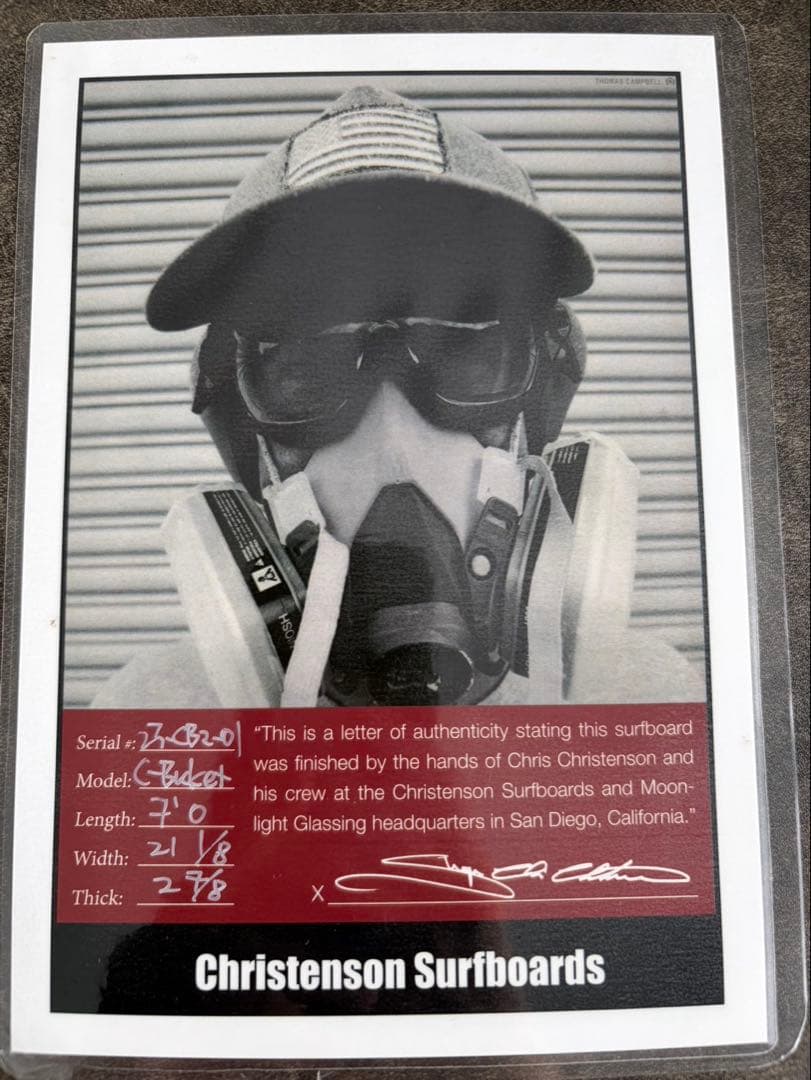 THOMAS CAMPBELL
Serial #: 23-CB2-01
Model: C-Bucket
Length: 7'0
Width: 21 1/8
Thick: 2 7/8
"This is a letter of authenticity stating this surfboard
was finished by the hands of Chris Christenson and
his crew at the Christenson Surfboards and Moon-
light Glassing headquarters in San Diego, California."
X
Christenson Surfboards